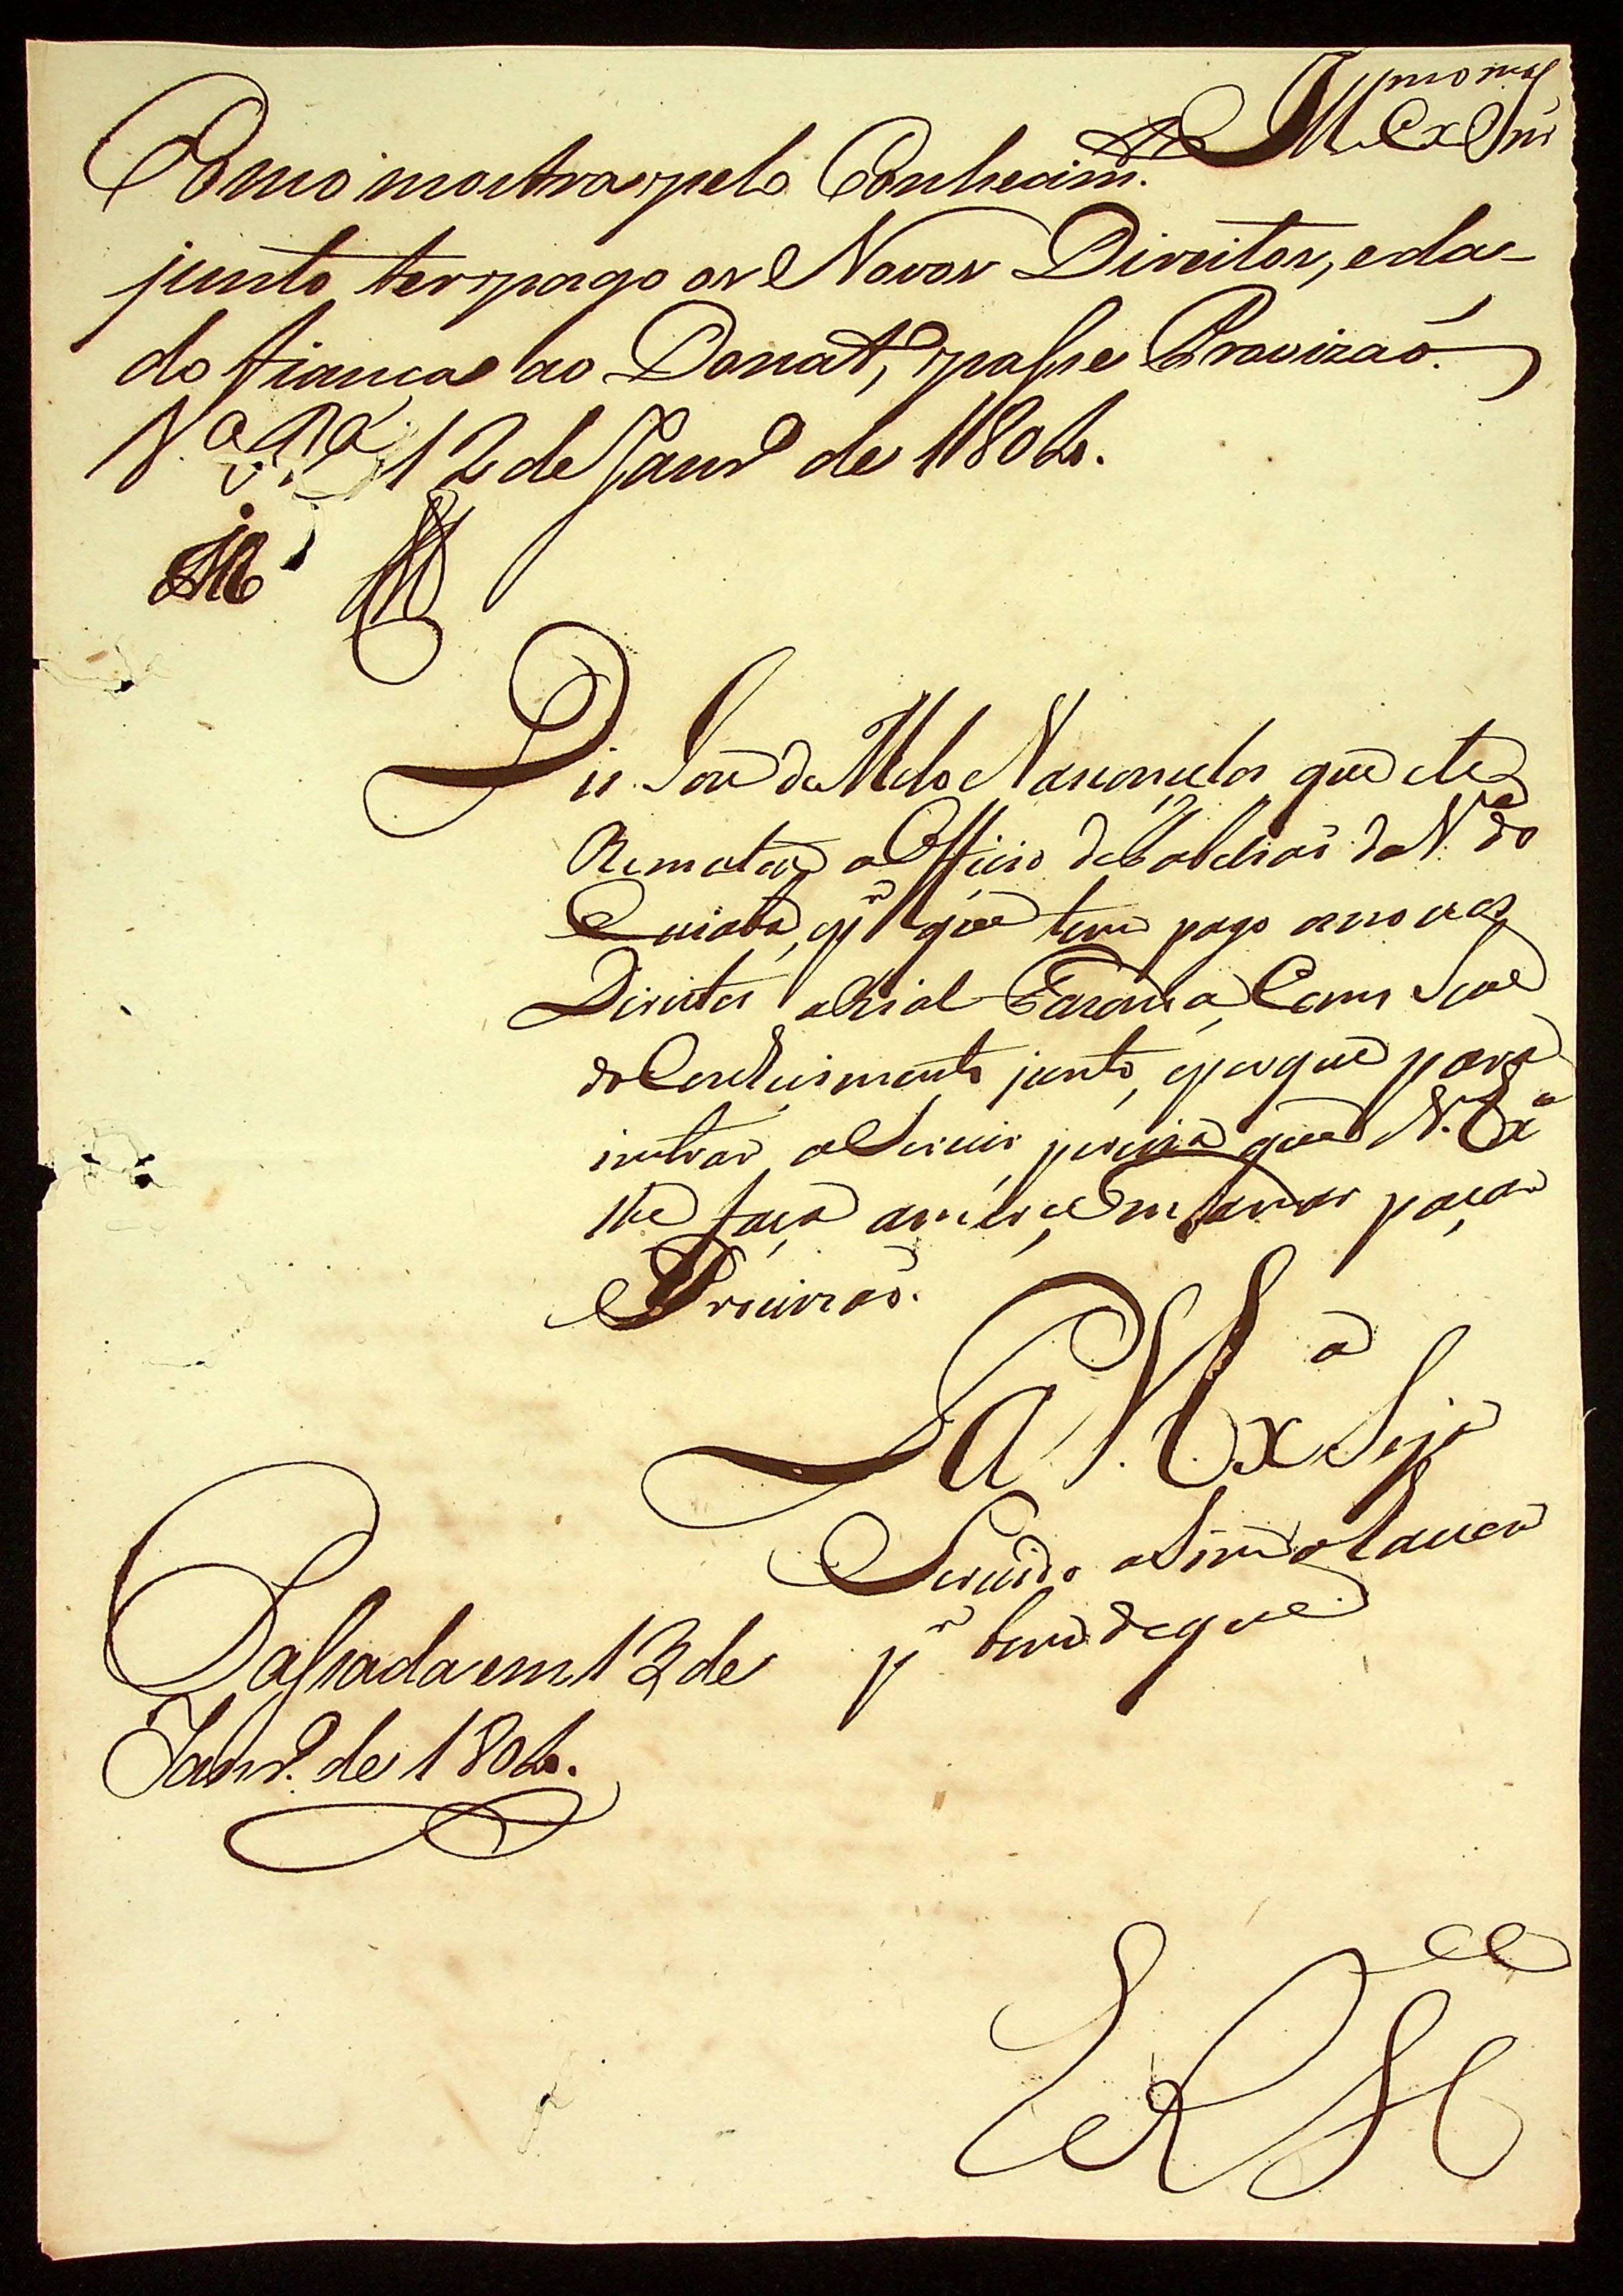 Ill.mo e Ex.mo Snr
Como mostra pelo Conhecim.to
junto ter pago os Novos Direitos, e da-
do fiança ao Donat.o, passe Provizaó.
V.a B.a 12 de Janr.o de 1804.
Dis Joze de Mello Vasconcelos que ele
Rematou o Officio de Tabeliaõ da V.a do
Cuiabá, e p.r que tem pago os novos
Direitos a Rial Fazenda, Como
do Conhecimento junto, e porque para
intrar a Servir percisa que V. Ex.a
lhe faça a merce mandar paçar
Provizaõ.
P. a V. Ex.a Seja
Servido asim o mandar
p.r bem de que
Passada em 12 de
Janr.o de 1804.
E R M.ce